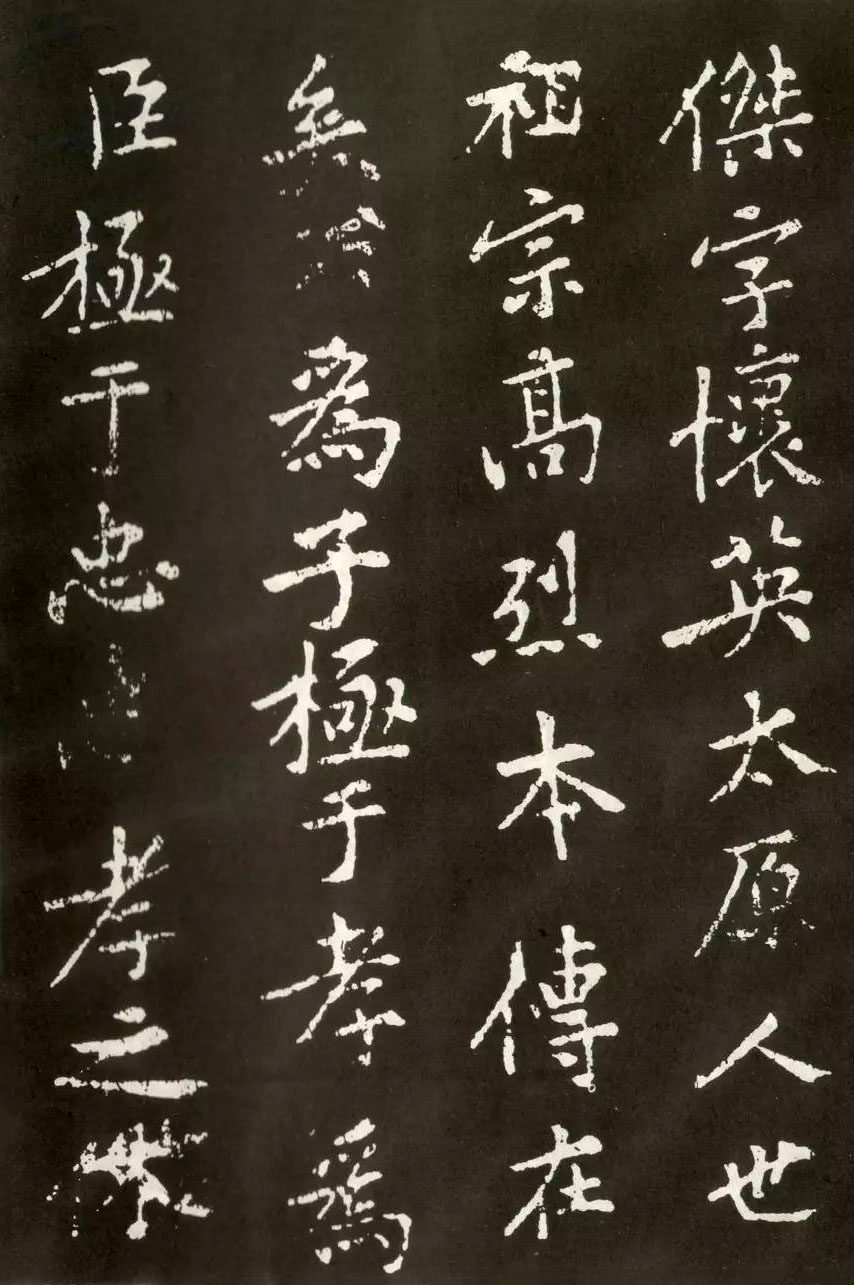 傑字懷英太原人世
祖宗高烈本傳在
矣爲子極于孝爲
臣極于忠孝之